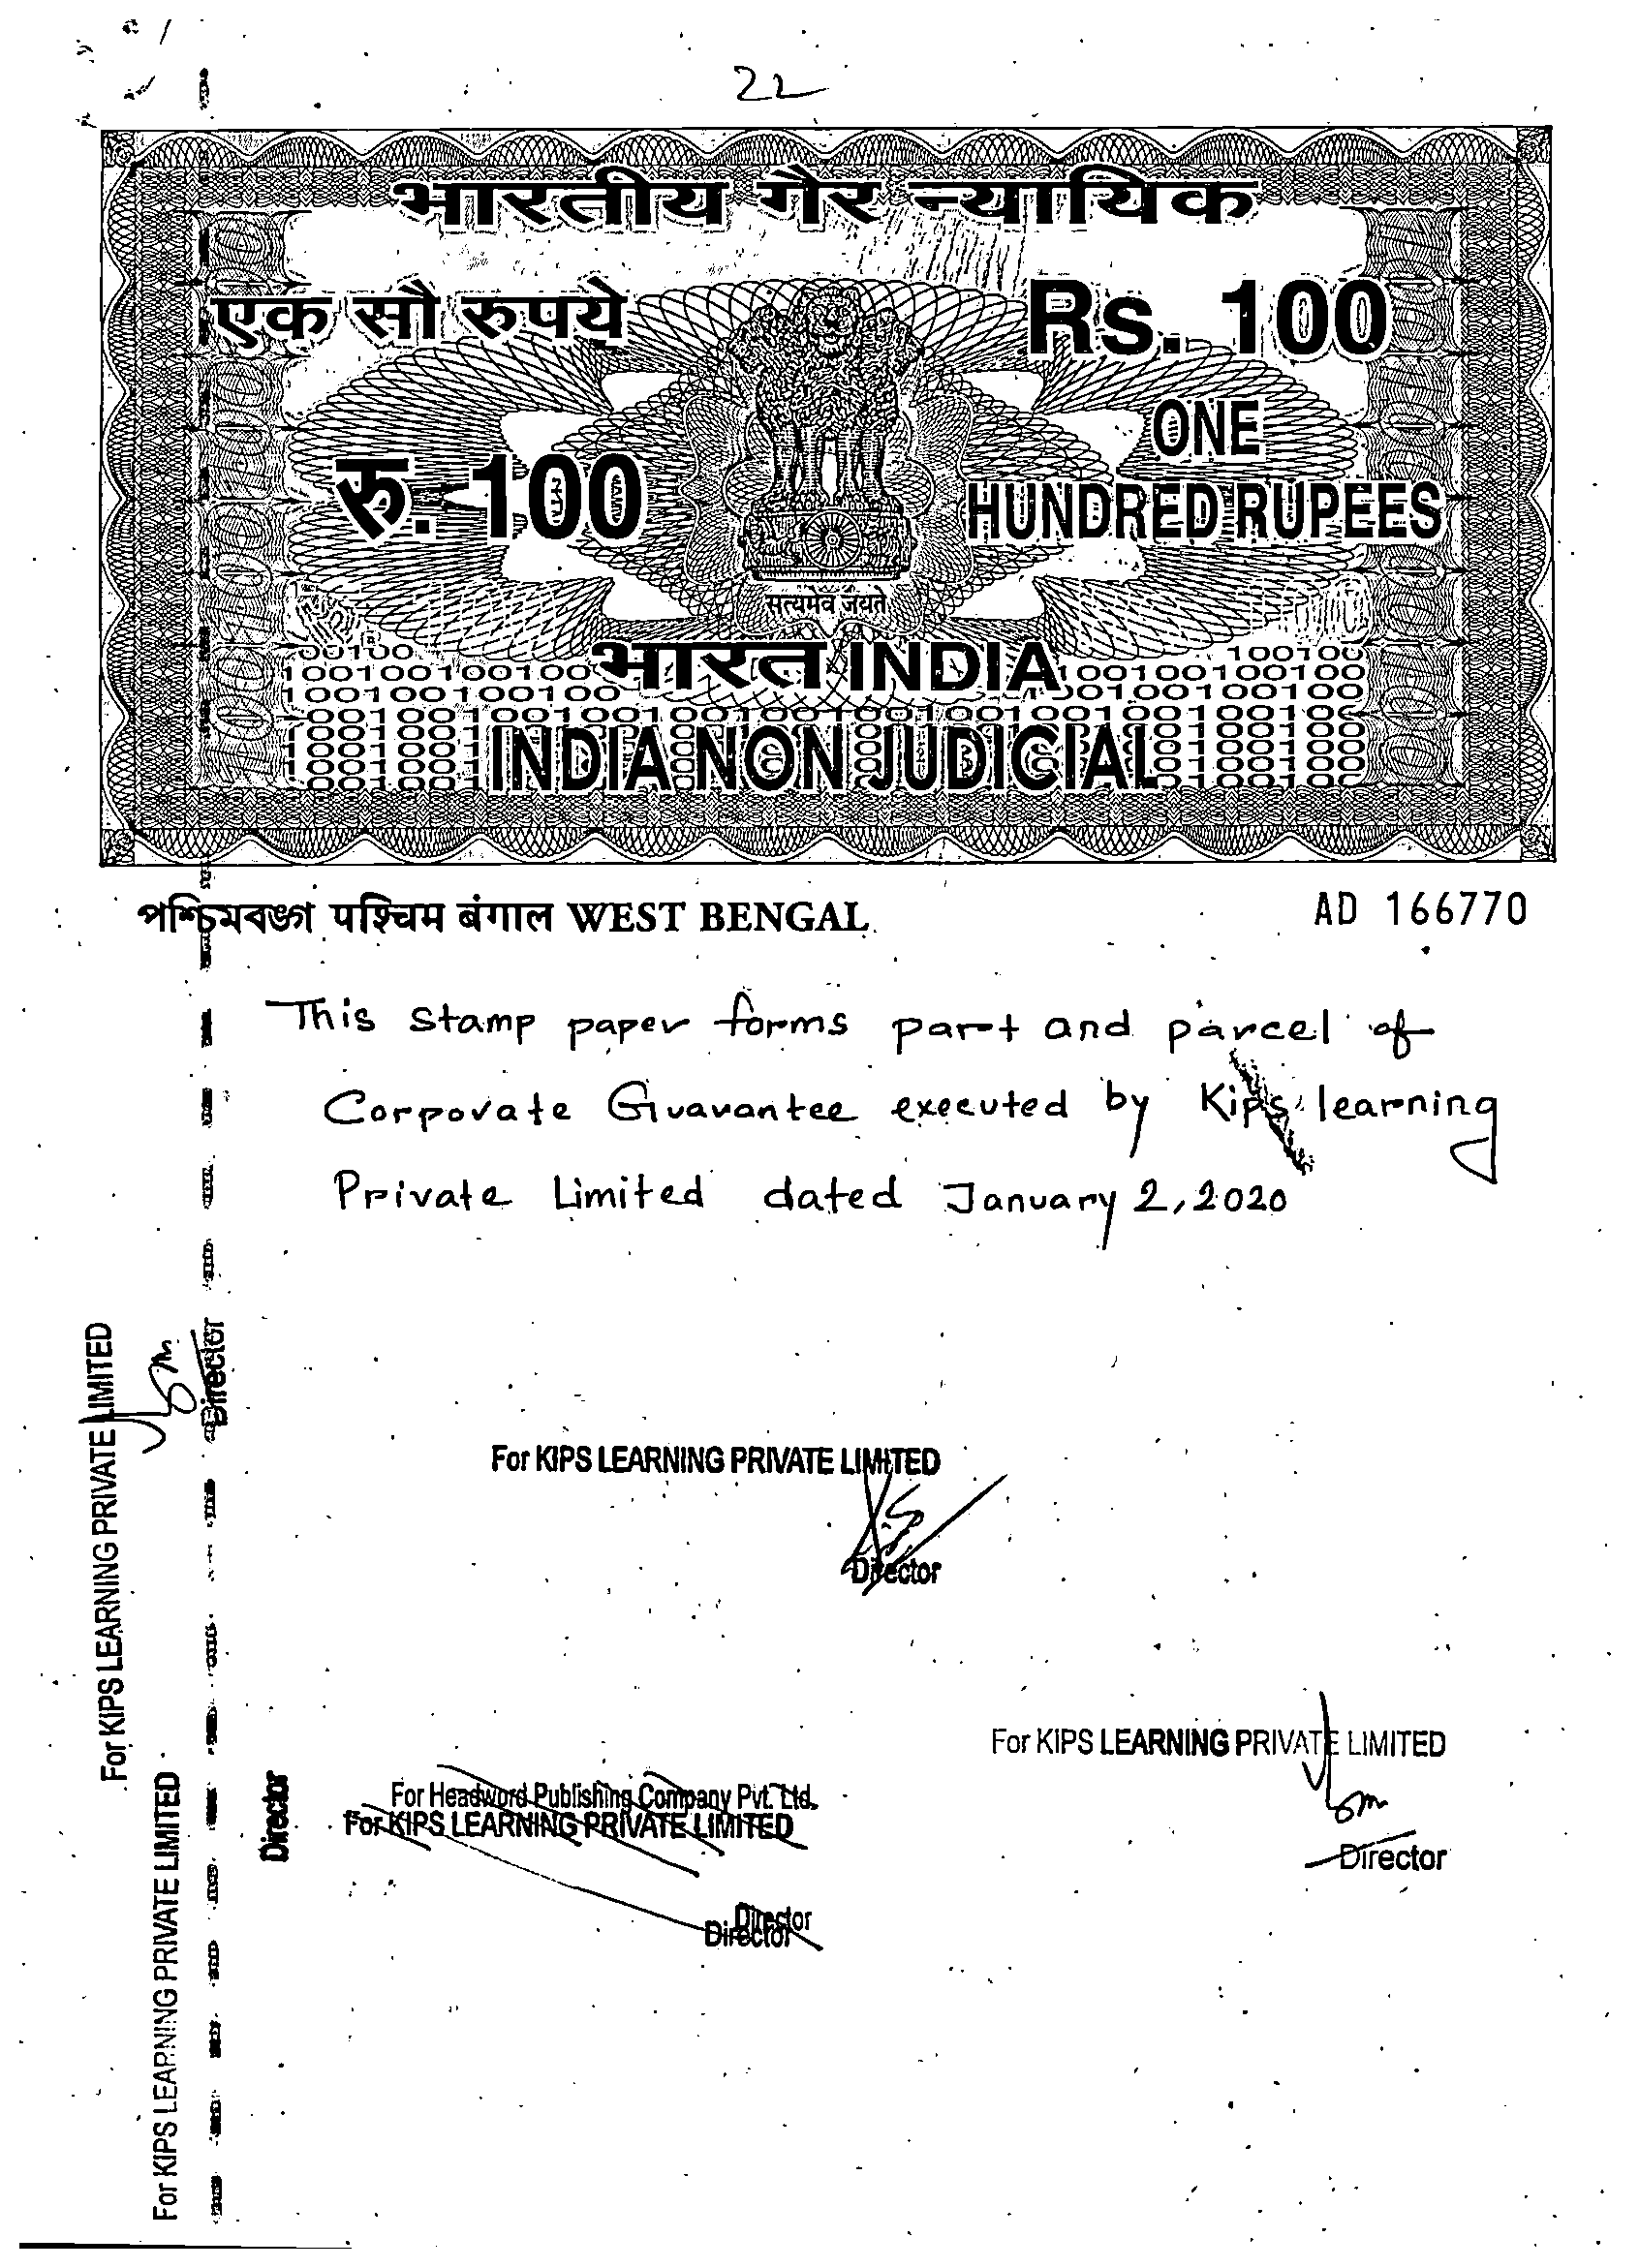 22
भारतीय गैर न्यायिक
एक सौ रुपये
Rs. 100
रु. 100
ONE
HUNDRED RUPEES
सत्यमेव जयते
भारत INDIA
INDIA NON JUDICIAL
পশ্চিমবঙ্গ पश्चिम बंगाल WEST BENGAL
AD 166770
This stamp paper forms part and parcel of
Corporate Guarantee executed by Kips learning
Private Limited dated January 2, 2020
For KIPS LEARNING PRIVATE LIMITED
Director
For KIPS LEARNING PRIVATE LIMITED
Director
For KIPS LEARNING PRIVATE LIMITED
Director
For Headword Publishing Company Pvt. Ltd.
For KIPS LEARNING PRIVATE LIMITED
Director
Director
For KIPS LEARNING PRIVATE LIMITED
Director